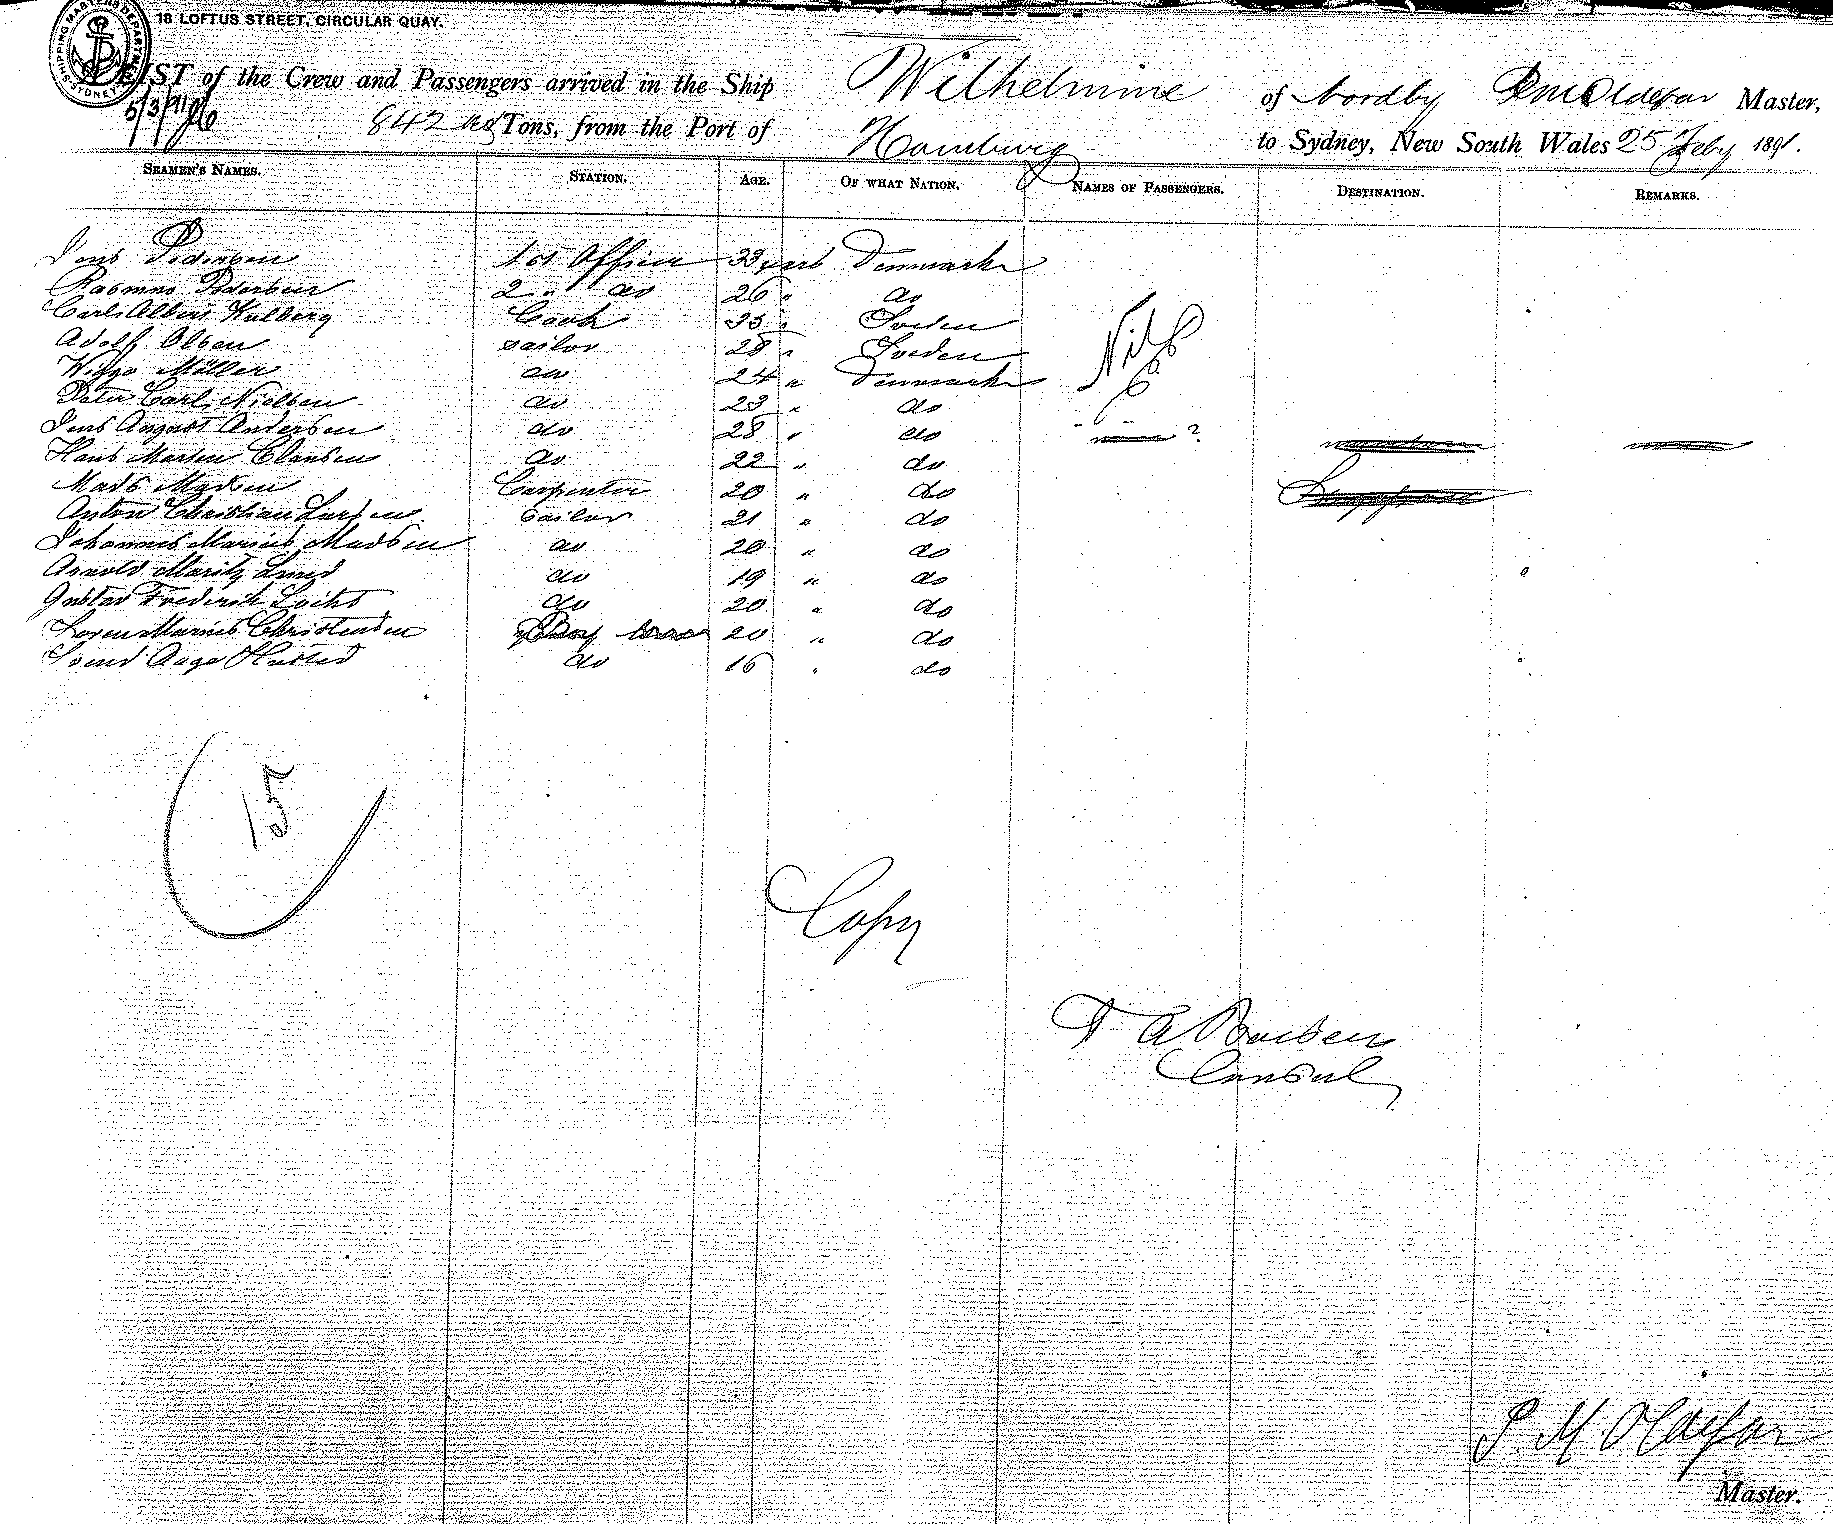 SHIPPING MASTERS DEPARTMENT SYDNEY
18 LOFTUS STREET, CIRCULAR QUAY.
LIST of the Crew and Passengers arrived in the Ship Wilhelmine of Nordby P M Oldefar Master,
5/3/91
842 Tons, from the Port of Hamburg to Sydney, New South Wales 25 Feby 1891.
SEAMEN'S NAMES. STATION. AGE. OF WHAT NATION. NAMES OF PASSENGERS. DESTINATION. REMARKS.
Jens Pedersen 1st Officer 33 years Denmark
Rasmus Pedersen 2 " do 26 " do
Carl Albin Kulberg Cook 35 " Sveden
Adolf Olsen sailor 28 " Sveden Nil
Viggo Möller do 24 " Denmark
Peter Carl Nielsen do 23 " do
Jens August Andersen do 28 " do ?
Hans Morten Clausen do 22 " do
Mads Madsen Carpenter 20 " do
Anton Christian Larsen sailor 21 " do
Johannes Marius Madsen do 20 " do
Arnold Moritz Lund do 19 " do
Gustav Frederik do 20 " do
Marius Christensen Boy 20 " do
Svend Aage Husted do 16 " do
15
Copy
A Boesen
Consul
P. M Oldefar
Master.